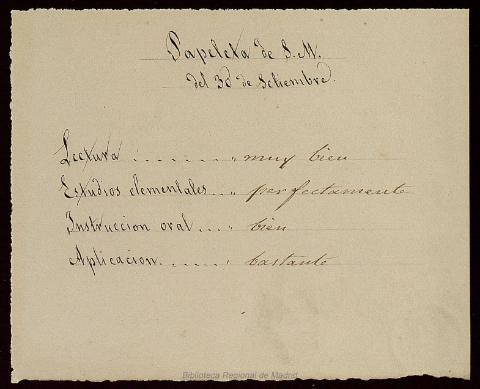 Papeleta de S. M.
del 30 de Setiembre.
Lectura . . . . . . . „ muy bien
Estudios elementales . . „ perfectamente
Instruccion oral . . . . „ bien
Aplicacion . . . . . . : bastante
Biblioteca Regional de Madrid